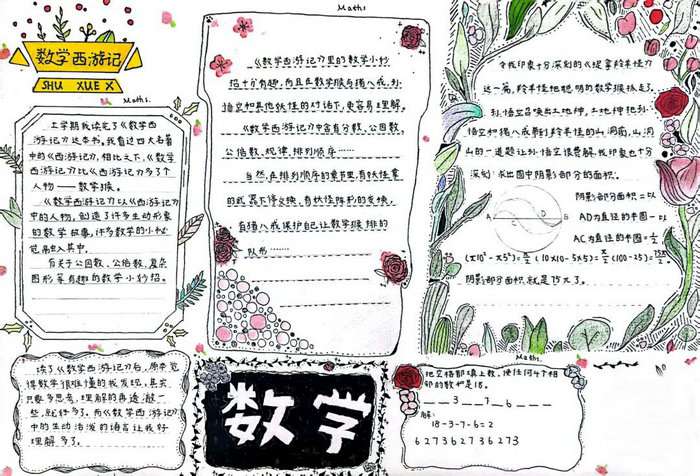 数学西游记
SHU XUE X
Maths.
上学期我读完了《数学西
游记》这本书。我看过四大名著
中的《西游记》,相比之下,《数学
西游记》比《西游记》多了个
人物——数学猴。
《数学西游记》以《西游记》
中的人物,创造了许多生动形象
的数学故事,许多数学的小知
识融入其中。
有关于公因数、公倍数、复杂
图形等有趣的数学小妙招。
读了《数学西游记》后,原来觉
得数学很难懂的我发现,其实
只要多思考,理解的再透澈一
些,就好多了。而《数学西游记》
中的生动活泼的语言让我好
理解多了。
Maths
《数学西游记》里的数学小妙
招十分有趣,而且在数学猴与猪八戒、孙
悟空和其他妖怪的对话下,更容易理解。
《数学西游记》中含有分数、公因数、
公倍数、规律、排列顺序……
当然,在排列顺序的章节里,有妖怪拿
的武器不停交换,有妖怪阵列的变换,
有猪八戒保护自己,让数学猴排的
队书……
数学
令我印象十分深刻的《捉拿羚羊怪》
这一篇,羚羊怪把聪明的数学猴抓走了。
孙悟空召唤出土地神,土地神把孙
悟空和猪八戒带到羚羊怪的山洞前,山洞
的一道题让孙悟空很费解,我印象也十分
深刻:求出图中阴影部分的面积。
A B C
阴影部分面积=以
AD为直径的半圆-以
AC为直径的半圆=π/2
(π10²-π5²)=π/2(10×10-5×5)=π/2(100-25)=75π/2
阴影部分面积,就是75π了。
Maths.
把空格都填上数,使任何4个相
邻的数和是18。
_ _ 3 _ _ 7 _ 6 _ _ _
解:
18-3-7-6=2
62736273 6273